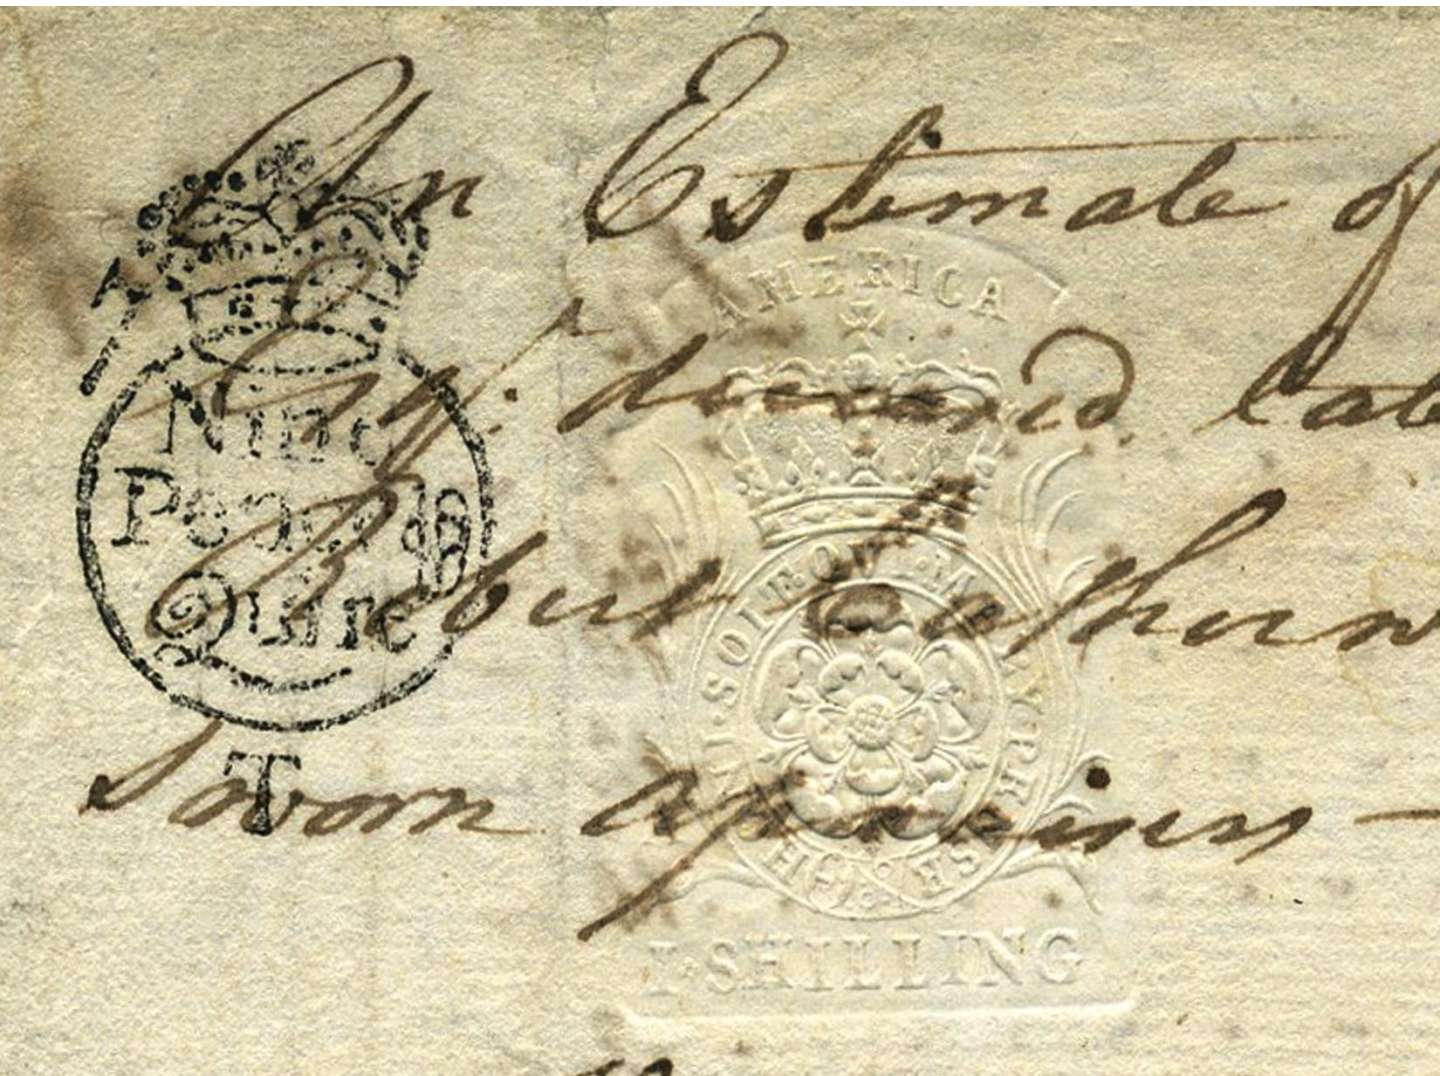 An Estimate of
Esqr. deceased. late
Robert Catherw
Sworn apprisers —
Nine
Pence
Quire
T
AMERICA
HONI·SOIT·QUI·MAL·Y·PENSE
I·SHILLING